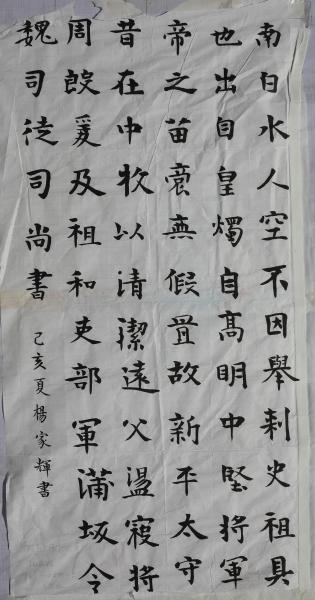 南白水人空不因舉刺史祖具
也出自皇燭自高明中堅將軍
帝之苗裔無假置故新平太守
昔在中牧以清潔遠父盪寇將
周殷爰及祖和吏部軍蒲坂令
魏司徒司尚書
己亥夏楊家輝書